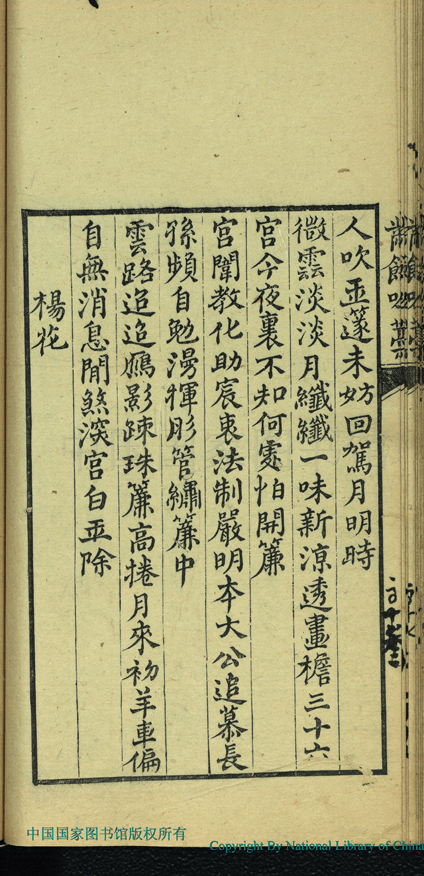 人吹玉篴未妨回駕月明時
微雲淡淡月纖纖一味新涼透畫檐三十六
宮今夜裏不知何處怕開簾
宮闈教化助宸衷法制嚴明本大公追慕長
孫頻自勉漫揮彤管繡簾中
雲路迢迢鴈影疎珠簾高捲月來初羊車偏
自無消息閒煞深宮白玉除
楊花
中国国家图书馆版权所有
Copyright By National Library of China